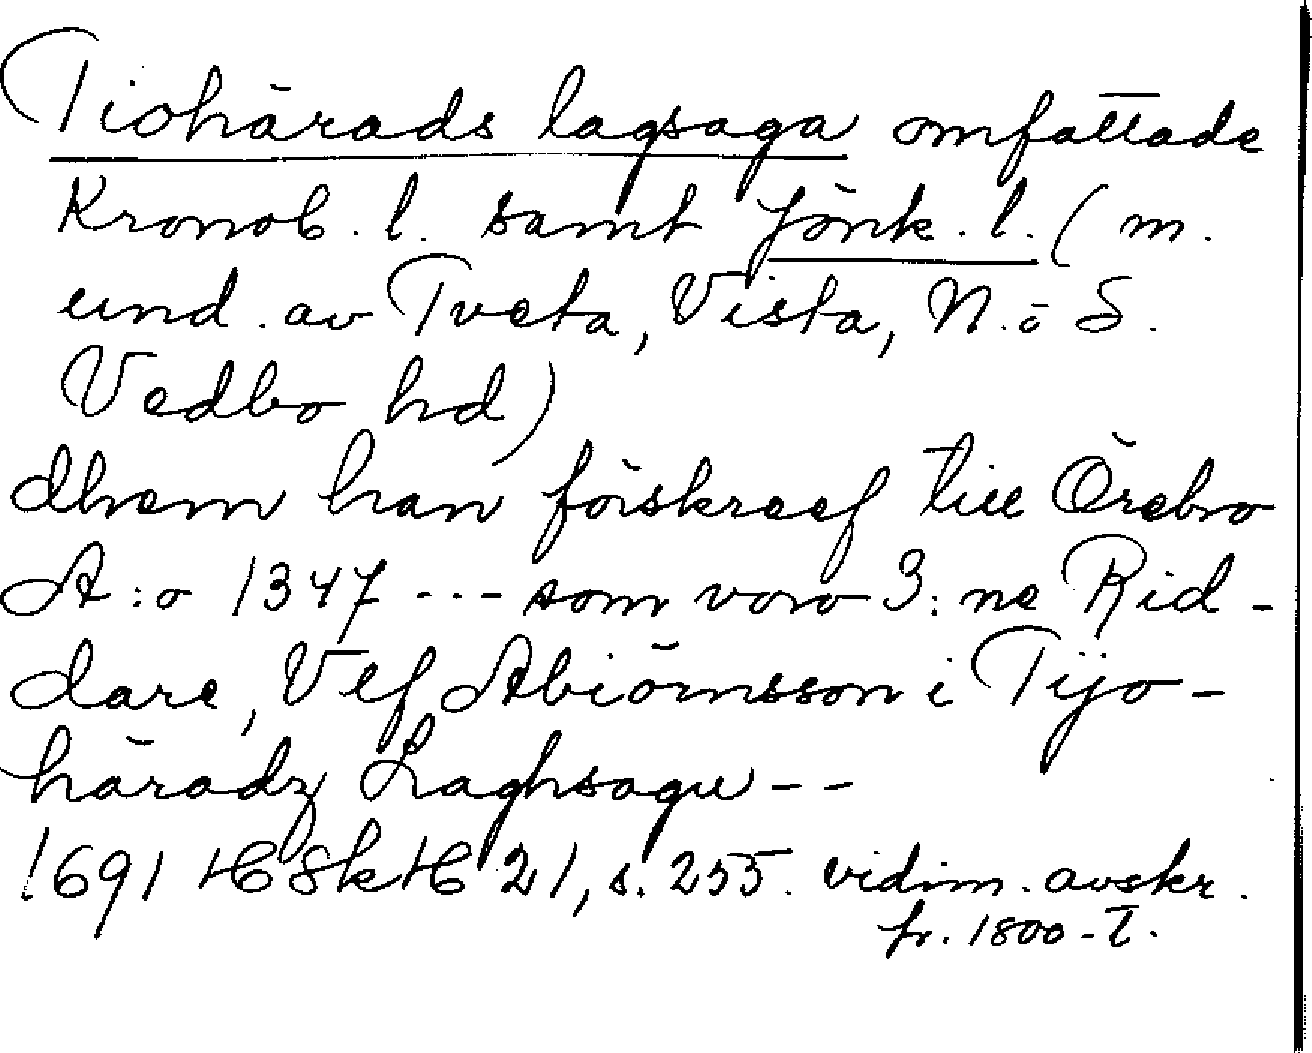 Tiohärads lagsaga omfattade
Kronob. l. samt Jönk. l. (m.
und. av Tveta, Vista, N. o S.
Vedbo hd)
dhem han förskreef till Örebro
A:o 1347 --- som voro 3:ne Rid-
dare, Vlf Abiörnsson i Tijo-
häradz Laghsagu --
1691 21, s. 255. vidim. avskr.
fr. 1800-t.